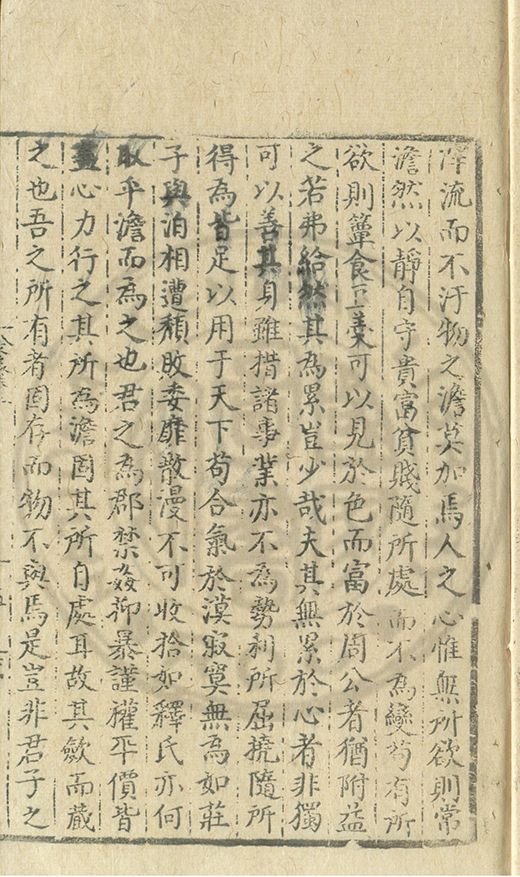 滓流而不汙物之澹莫加焉人之心惟無所欲則常
澹然以靜自守貴富貧賤隨所處而不為變苟有所
欲則簞食豆羹可以見於色而富於周公者猶附益
之若弗給然其為累豈少哉夫其無累於心者非獨
可以善其身雖措諸事業亦不為勢利所屈撓隨所
得為皆足以用于天下苟合氣於漠寂寞無為如莊
子與泊相遭頹敗委靡散漫不可收拾如釋氏亦何
取乎澹而為之也君之為郡禁姦抑暴謹權平價皆
盡心力行之其所為澹固其所自處耳故其斂而藏
之也吾之所有者固存而物不與焉是豈非君子之